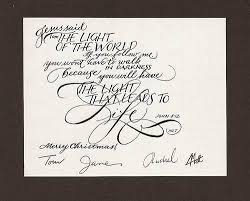 Jesus said
THE LIGHT
OF THE WORLD
If you follow me
you wont have to walk
IN DARKNESS
because you will have
THE LIGHT
THAT LEADS TO
Life
JOHN 8:12
Merry Christmas!
Tom Jane Rachel